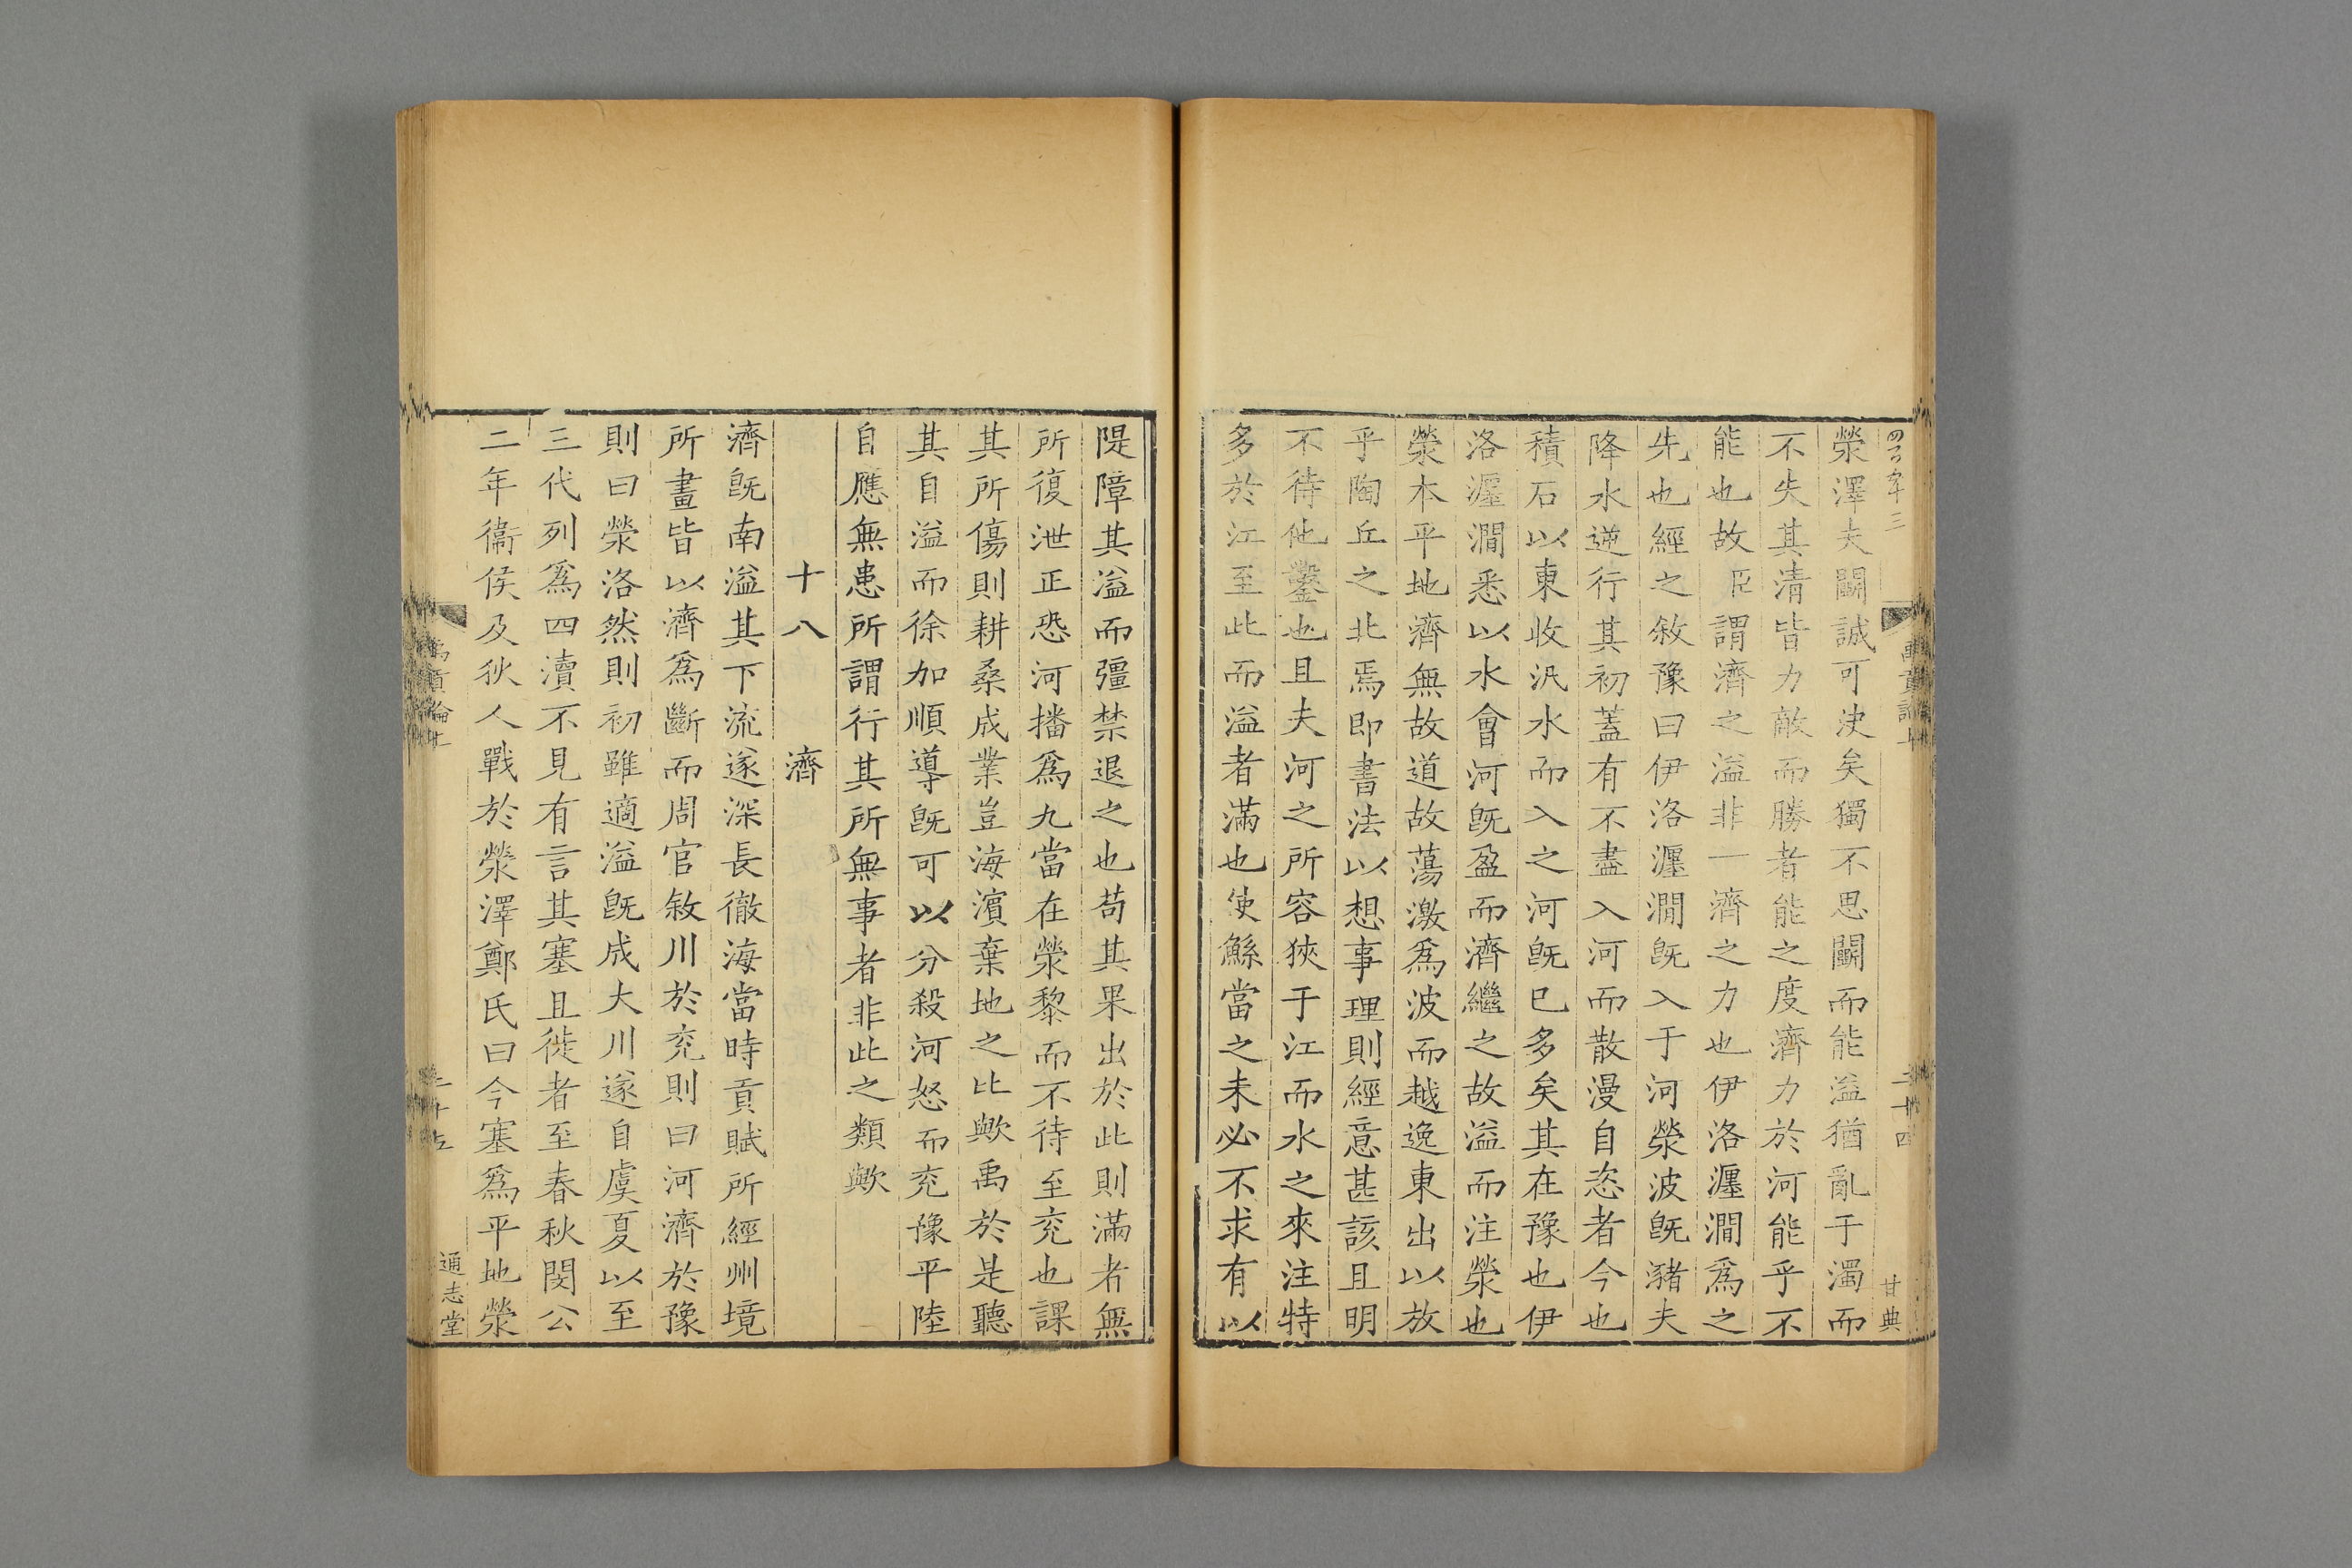 滎澤夫鬬誠可決矣獨不思鬬而能溢猶亂于濁而
不失其清皆力敵而勝者能之度濟力於河能乎不
能也故臣謂濟之溢非一濟之力也伊洛瀍澗爲之
先也經之敘豫曰伊洛瀍澗旣入于河滎波旣豬夫
降水逆行其初蓋有不盡入河而散漫自恣者今也
積石以東收汎水而入之河旣已多矣其在豫也伊
洛瀍澗悉以水會河旣盈而濟繼之故溢而注滎也
滎本平地濟無故道故蕩激爲波而越逸東出以放
乎陶丘之北焉即書法以想事理則經意甚該且明
不待他鑿也且夫河之所容狹于江而水之來注特
多於江至此而溢者滿也使鯀當之未必不求有以
隄障其溢而彊禁退之也苟其果出於此則滿者無
所復泄正恐河播爲九當在滎黎而不待至兖也課
其所傷則耕桑成業豈海濱棄地之比歟禹於是聽
其自溢而徐加順導旣可以分殺河怒而兖豫平陸
自應無患所謂行其所無事者非此之類歟
十八 濟
濟旣南溢其下流遂深長徹海當時貢賦所經州境
所畫皆以濟爲斷而周官敘川於兖則曰河濟於豫
則曰滎洛然則初雖適溢旣成大川遂自虞夏以至
三代列爲四瀆不見有言其塞且徙者至春秋閔公
二年衞侯及狄人戰於滎澤鄭氏曰今塞爲平地滎
禹貢論上
二十四
甘典
禹貢論上
二十五
通志堂